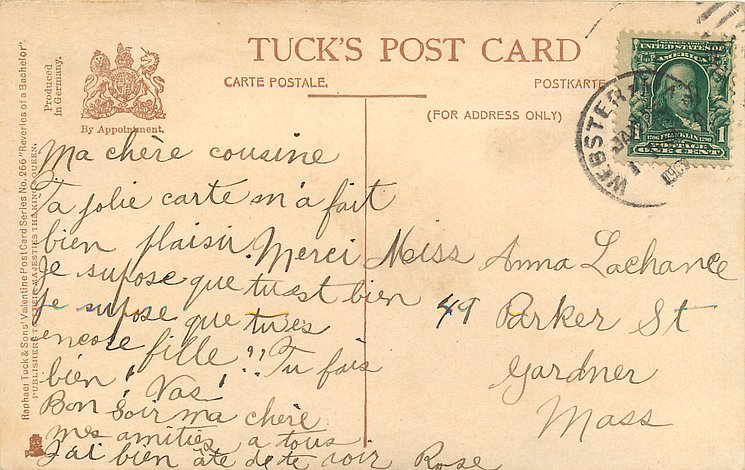 TUCK'S POST CARD
CARTE POSTALE.
POSTKARTE
(FOR ADDRESS ONLY)
Produced
in Germany.
By Appointment.
Raphael Tuck & Sons' Valentine Post Card Series No. 266 "Reveries of a Bachelor".
PUBLISHERS TO THEIR MAJESTIES THE KING & QUEEN.
UNITED STATES OF
AMERICA
1706 FRANKLIN 1790
1 1
POSTAGE
ONE CENT
WEBSTER
JAN
1
Ma chère cousine
Ta jolie carte m'a fait
bien plaisir. Merci
Je supose que tuest bien
Je supose que tu es
encore fille!! Tu fais
bien! Vas!
Bon Soir ma chère
mes amitiés a tous
J'ai bien ate de te voir Rose
Miss Anna Lachance
49 Parker St
Gardner
Mass